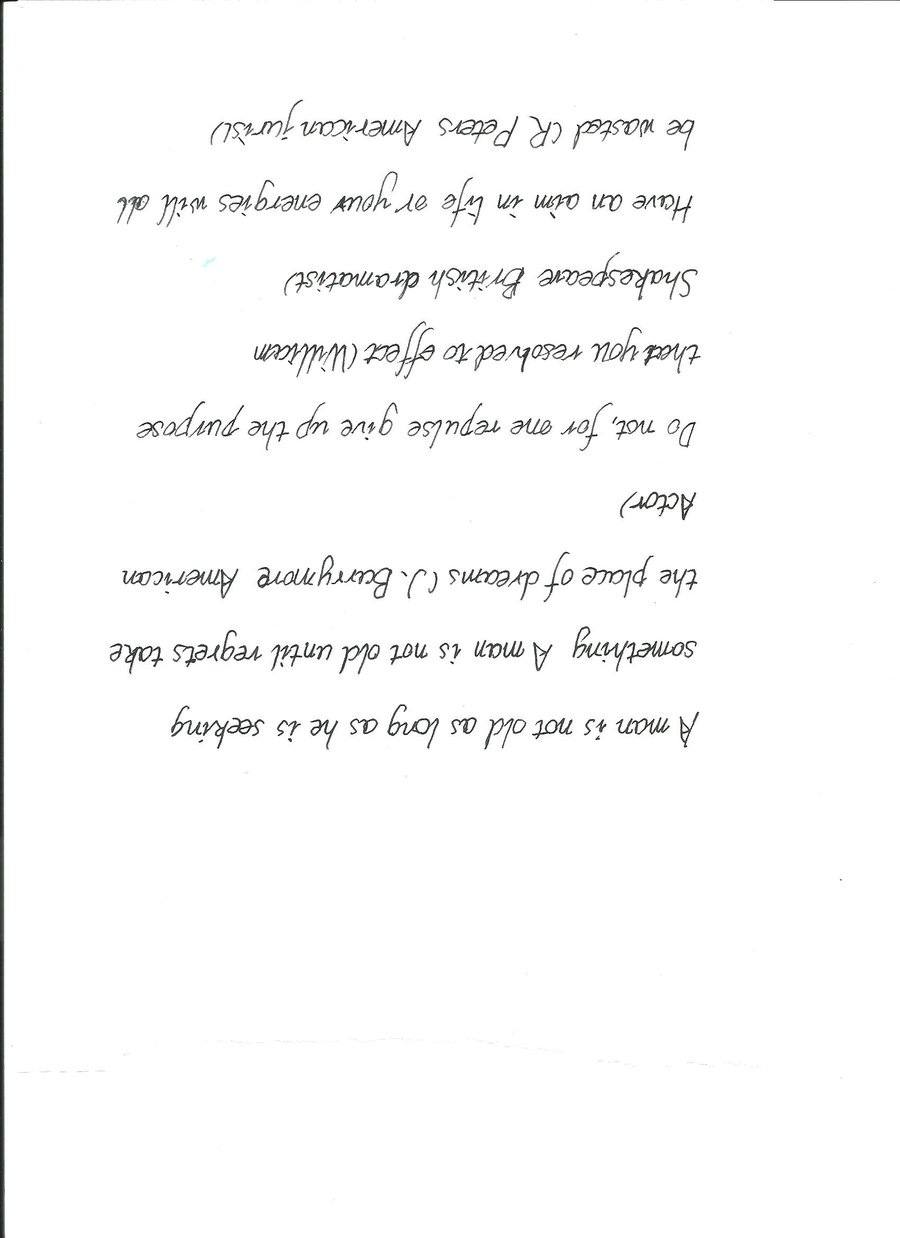 A man is not old as long as he is seeking
something A man is not old until regrets take
the place of dreams (J. Barrymore American
Actor)
Do not, for one repulse give up the purpose
that you resolved to effect (William
Shakespeare British dramatist)
Have an aim in life or your energies will all
be wasted (R Peters American jurist)